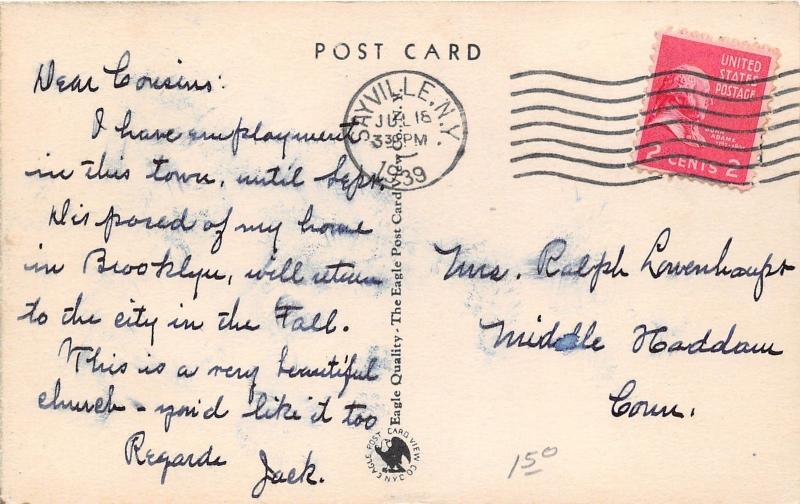 POST CARD
Dear Cousins:
I have employment
in this town, until Sept.
Disposed of my home
in Brooklyn, will return
to the city in the Fall.
This is a very beautiful
church - you'd like it too
Regards Jack.
SAYVILLE, N.Y.
JUL 18
330PM
1939
UNITED
STATES
POSTAGE
JOHN
ADAMS
2 CENTS 2
Mrs. Ralph Lowenhaupt
Middle Haddam
Conn.
Eagle Quality - The Eagle Post Card View Co., N. Y.
AN EAGLE POST CARD VIEW CO.
150